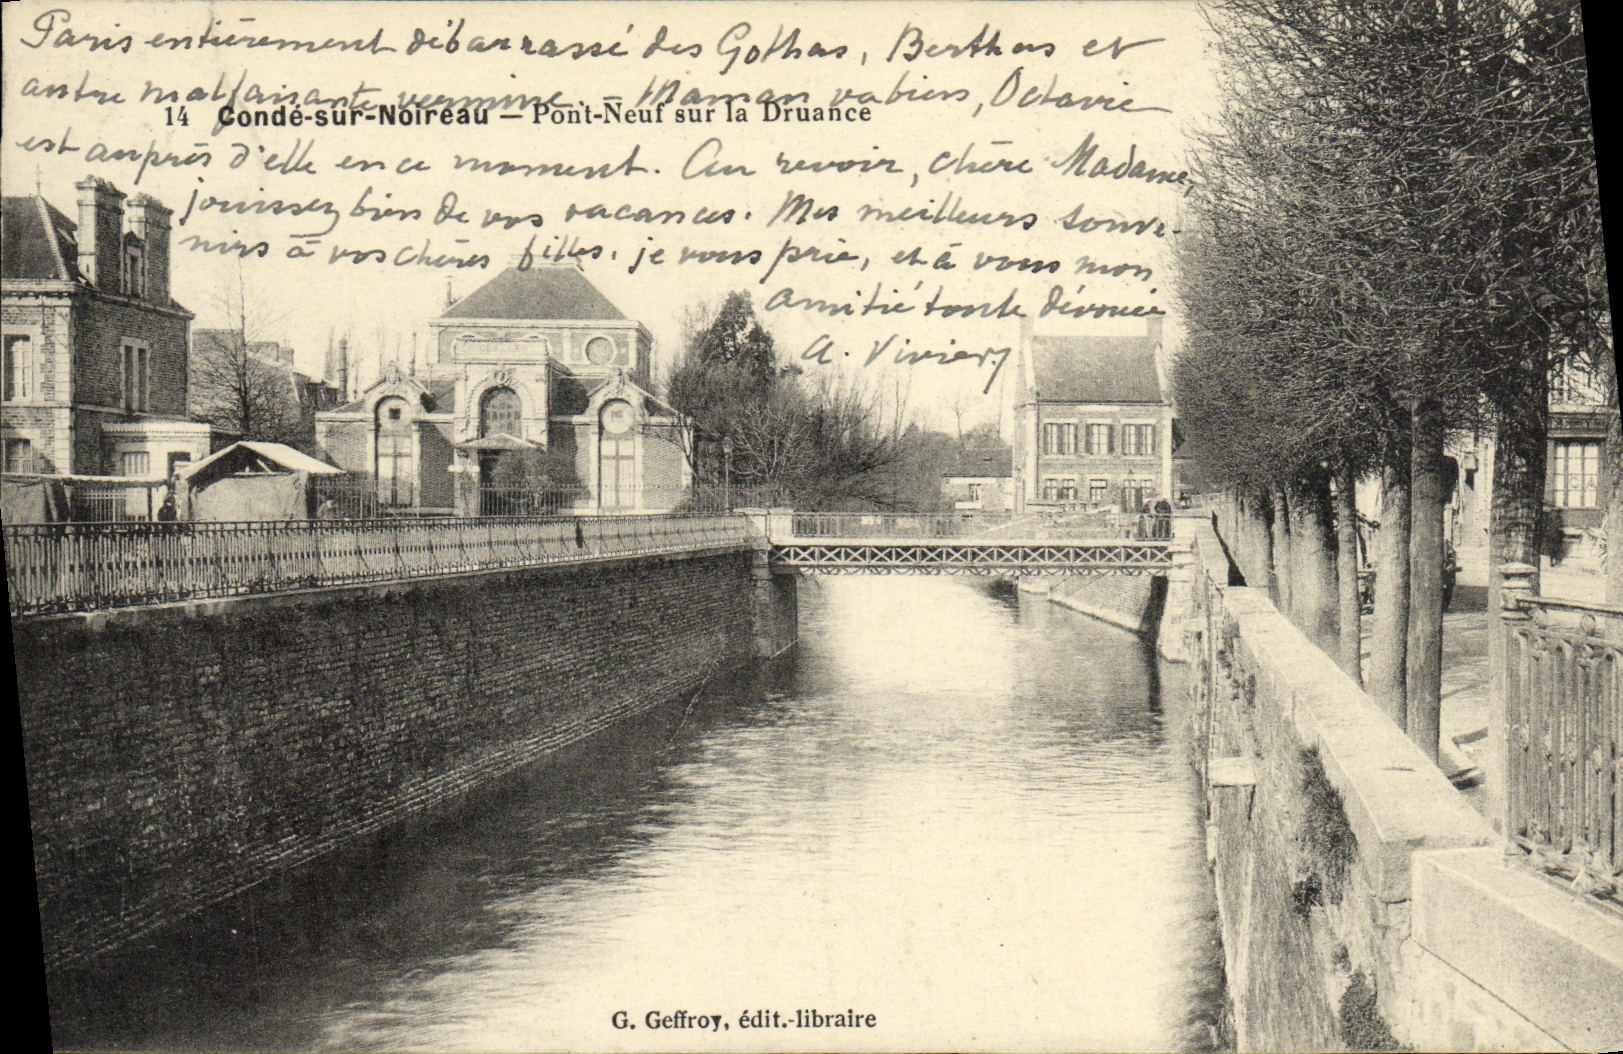 Paris entièrement débarrassé des Gothas, Berthas et
autre malfaisante vermine. – Maman va bien, Octavie
14 Condé-sur-Noireau — Pont-Neuf sur la Druance
est auprès d'elle en ce moment. Au revoir, chère Madame,
jouissez bien de vos vacances. Mes meilleurs souve-
nirs à vos chères filles, je vous prie, et à vous mon
amitié toute dévouée
A. Vivier
G. Geffroy, édit.-libraire